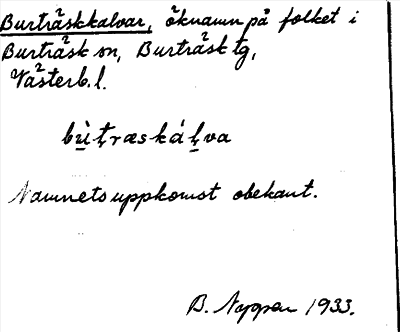 Burträskkalvar, öknamn på folket i
Burträsk sn, Burträsk tg,
Västerb. l.
bùt̨ræskáḷva
Namnets uppkomst obekant.
B. 1933.